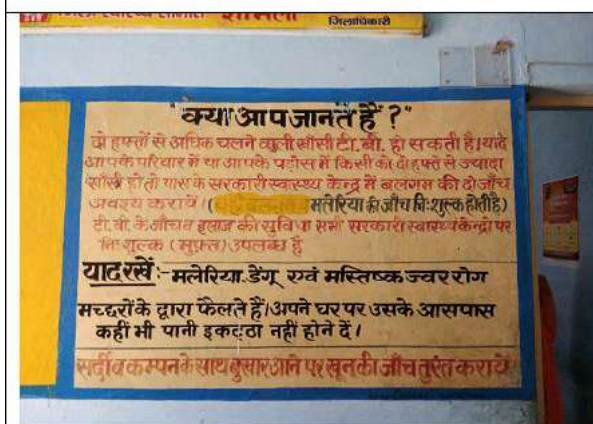 जिला स्वास्थ्य समिति शामली जिलाधिकारी
"क्या आप जानते हैं ?"
दो हफ्तों से अधिक चलने वाली खाँसी टी.बी. हो सकती है। यदि
आपके परिवार में या आपके पड़ोस में किसी को दो हफ्ते से ज्यादा
खाँसी हो तो पास के सरकारी स्वास्थ्य केन्द्र में बलगम की दो जाँच
अवश्य करायें। ( मलेरिया की जाँच निःशुल्क होती है)
टी.बी. के जाँच व इलाज की सुविधा सभी सरकारी स्वास्थ्य केन्द्रो पर
निःशुल्क (मुफ़्त) उपलब्ध है
याद रखें:- मलेरिया. डेंगू एवं मस्तिष्क ज्वर रोग
मच्छरों के द्वारा फैलते हैं। अपने घर पर उसके आसपास
कहीं भी पानी इकट्ठा नहीं होने दें।
सर्दी व कम्पन के साथ बुखार आने पर खून की जाँच तुरंत करायें